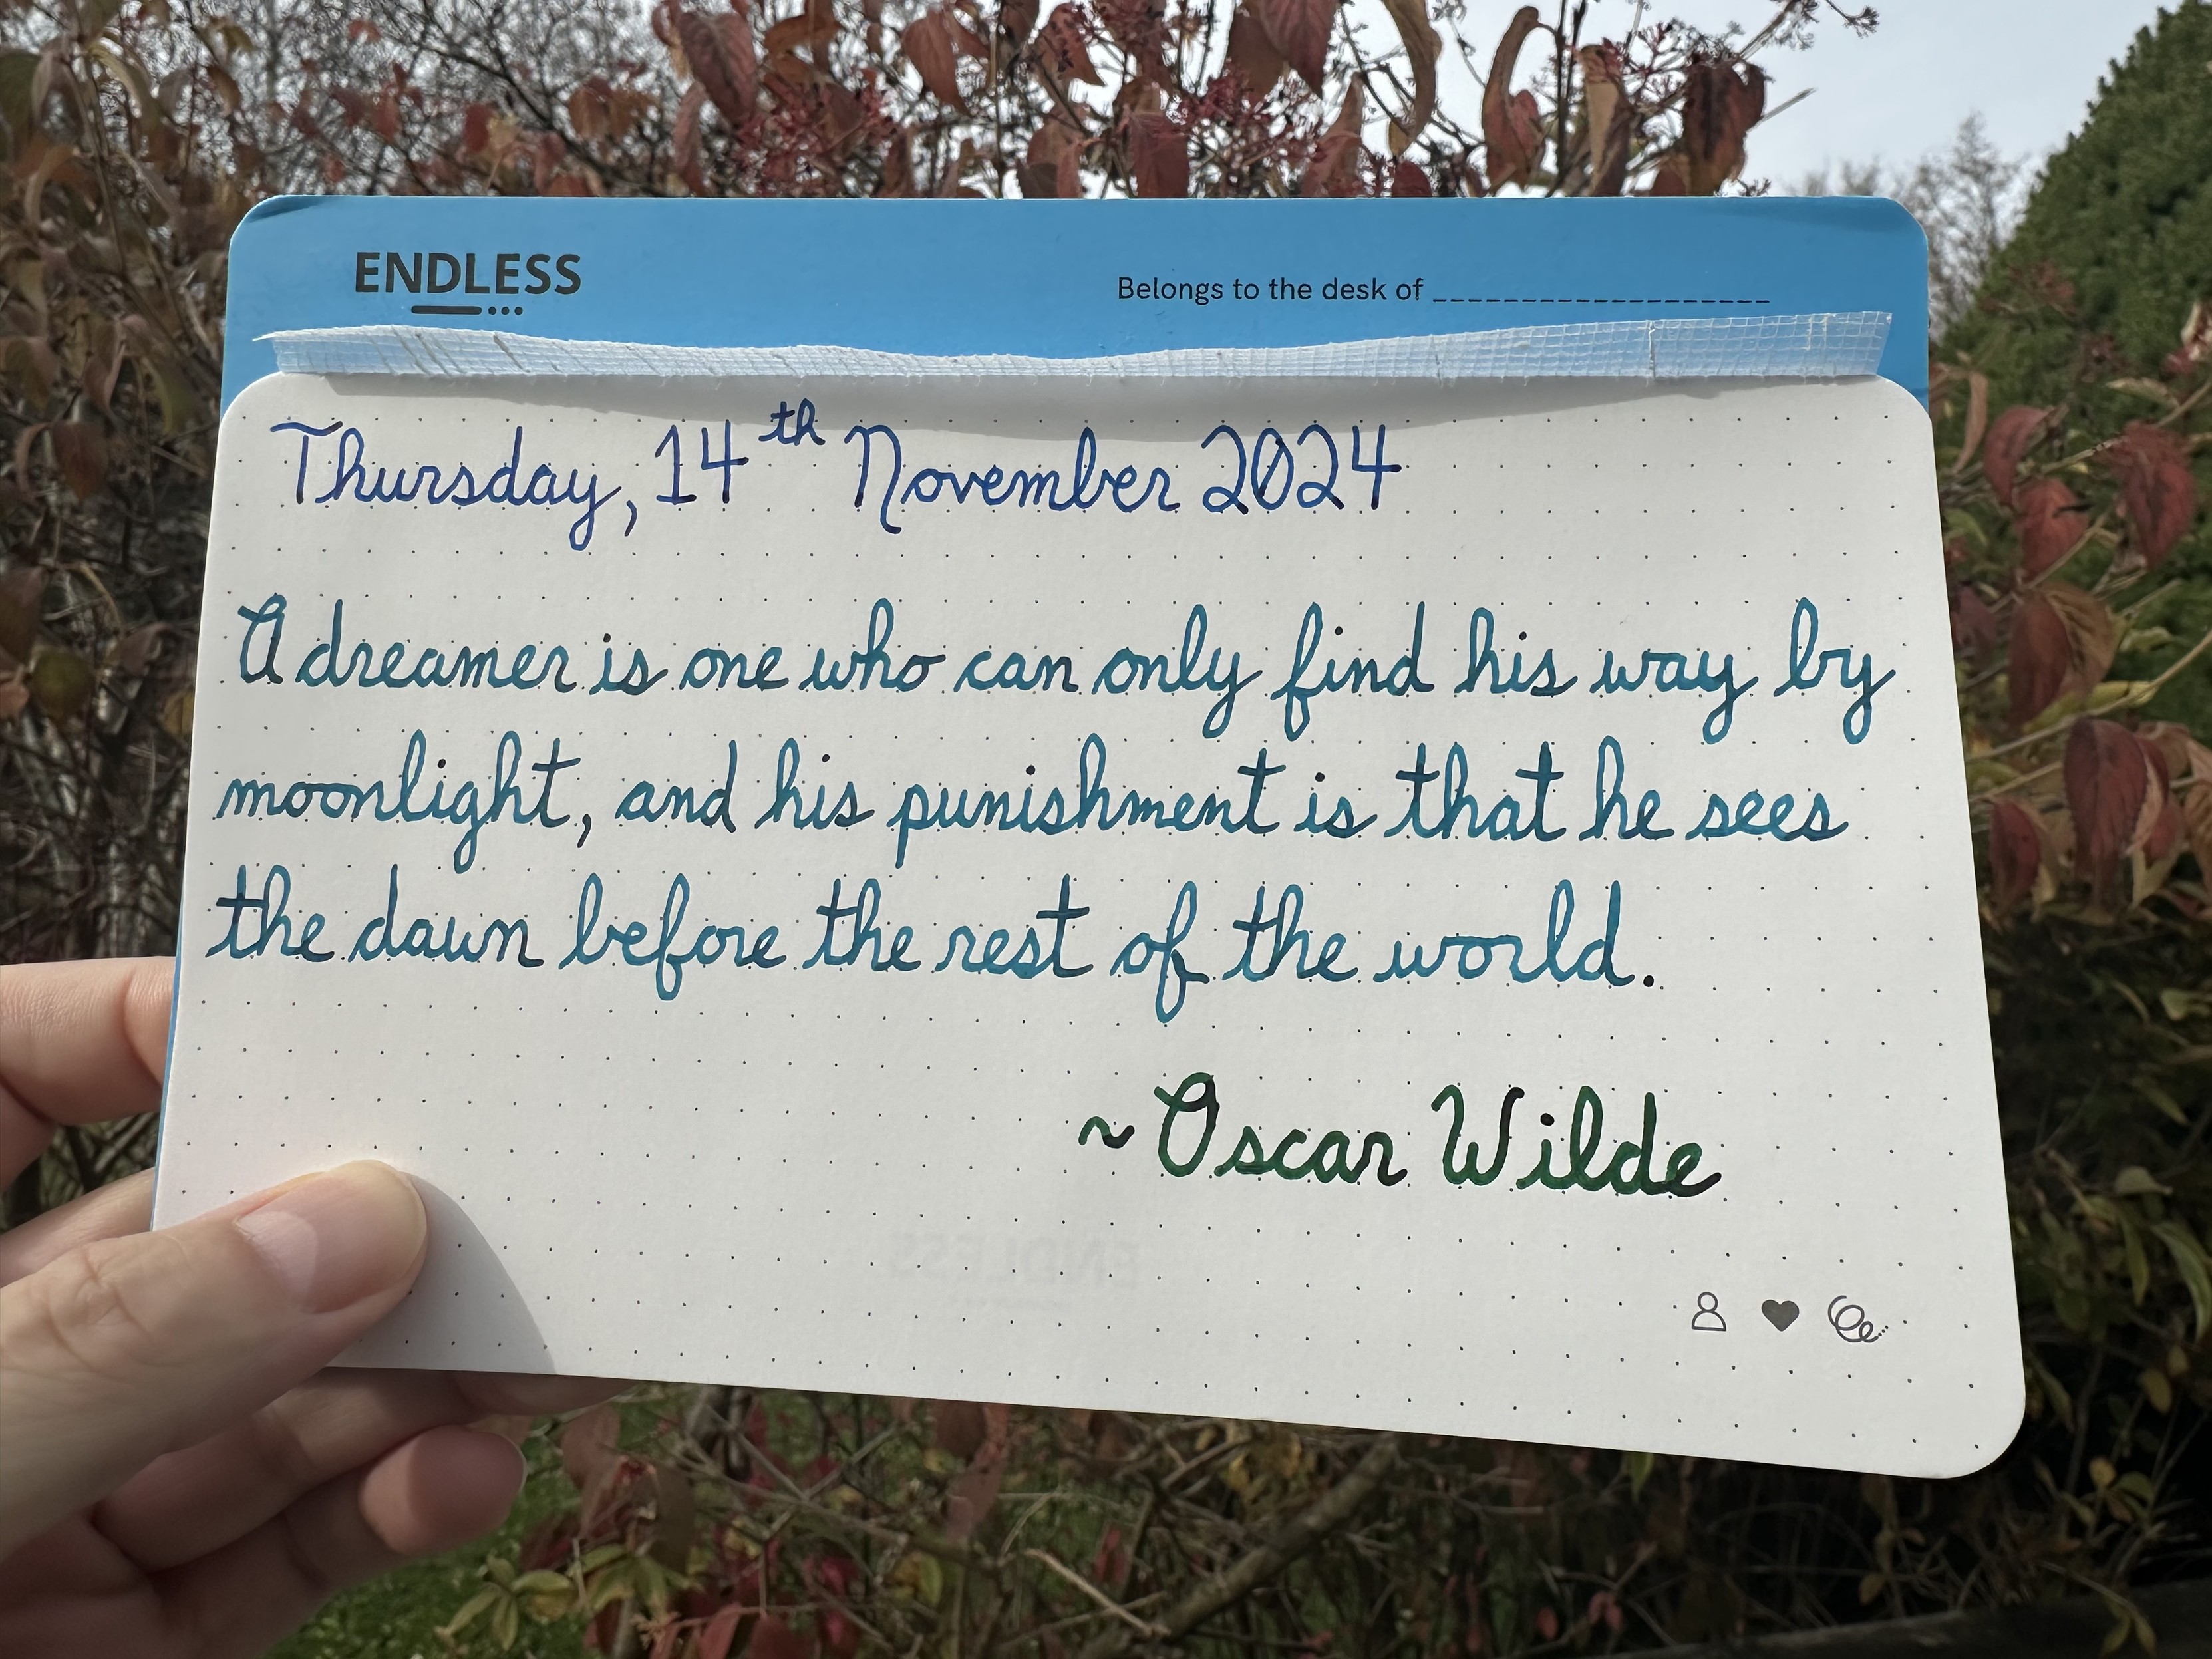 ENDLESS
Belongs to the desk of ___________________
Thursday, 14th November 2024
A dreamer is one who can only find his way by
moonlight, and his punishment is that he sees
the dawn before the rest of the world.
~ Oscar Wilde
ENDLESS